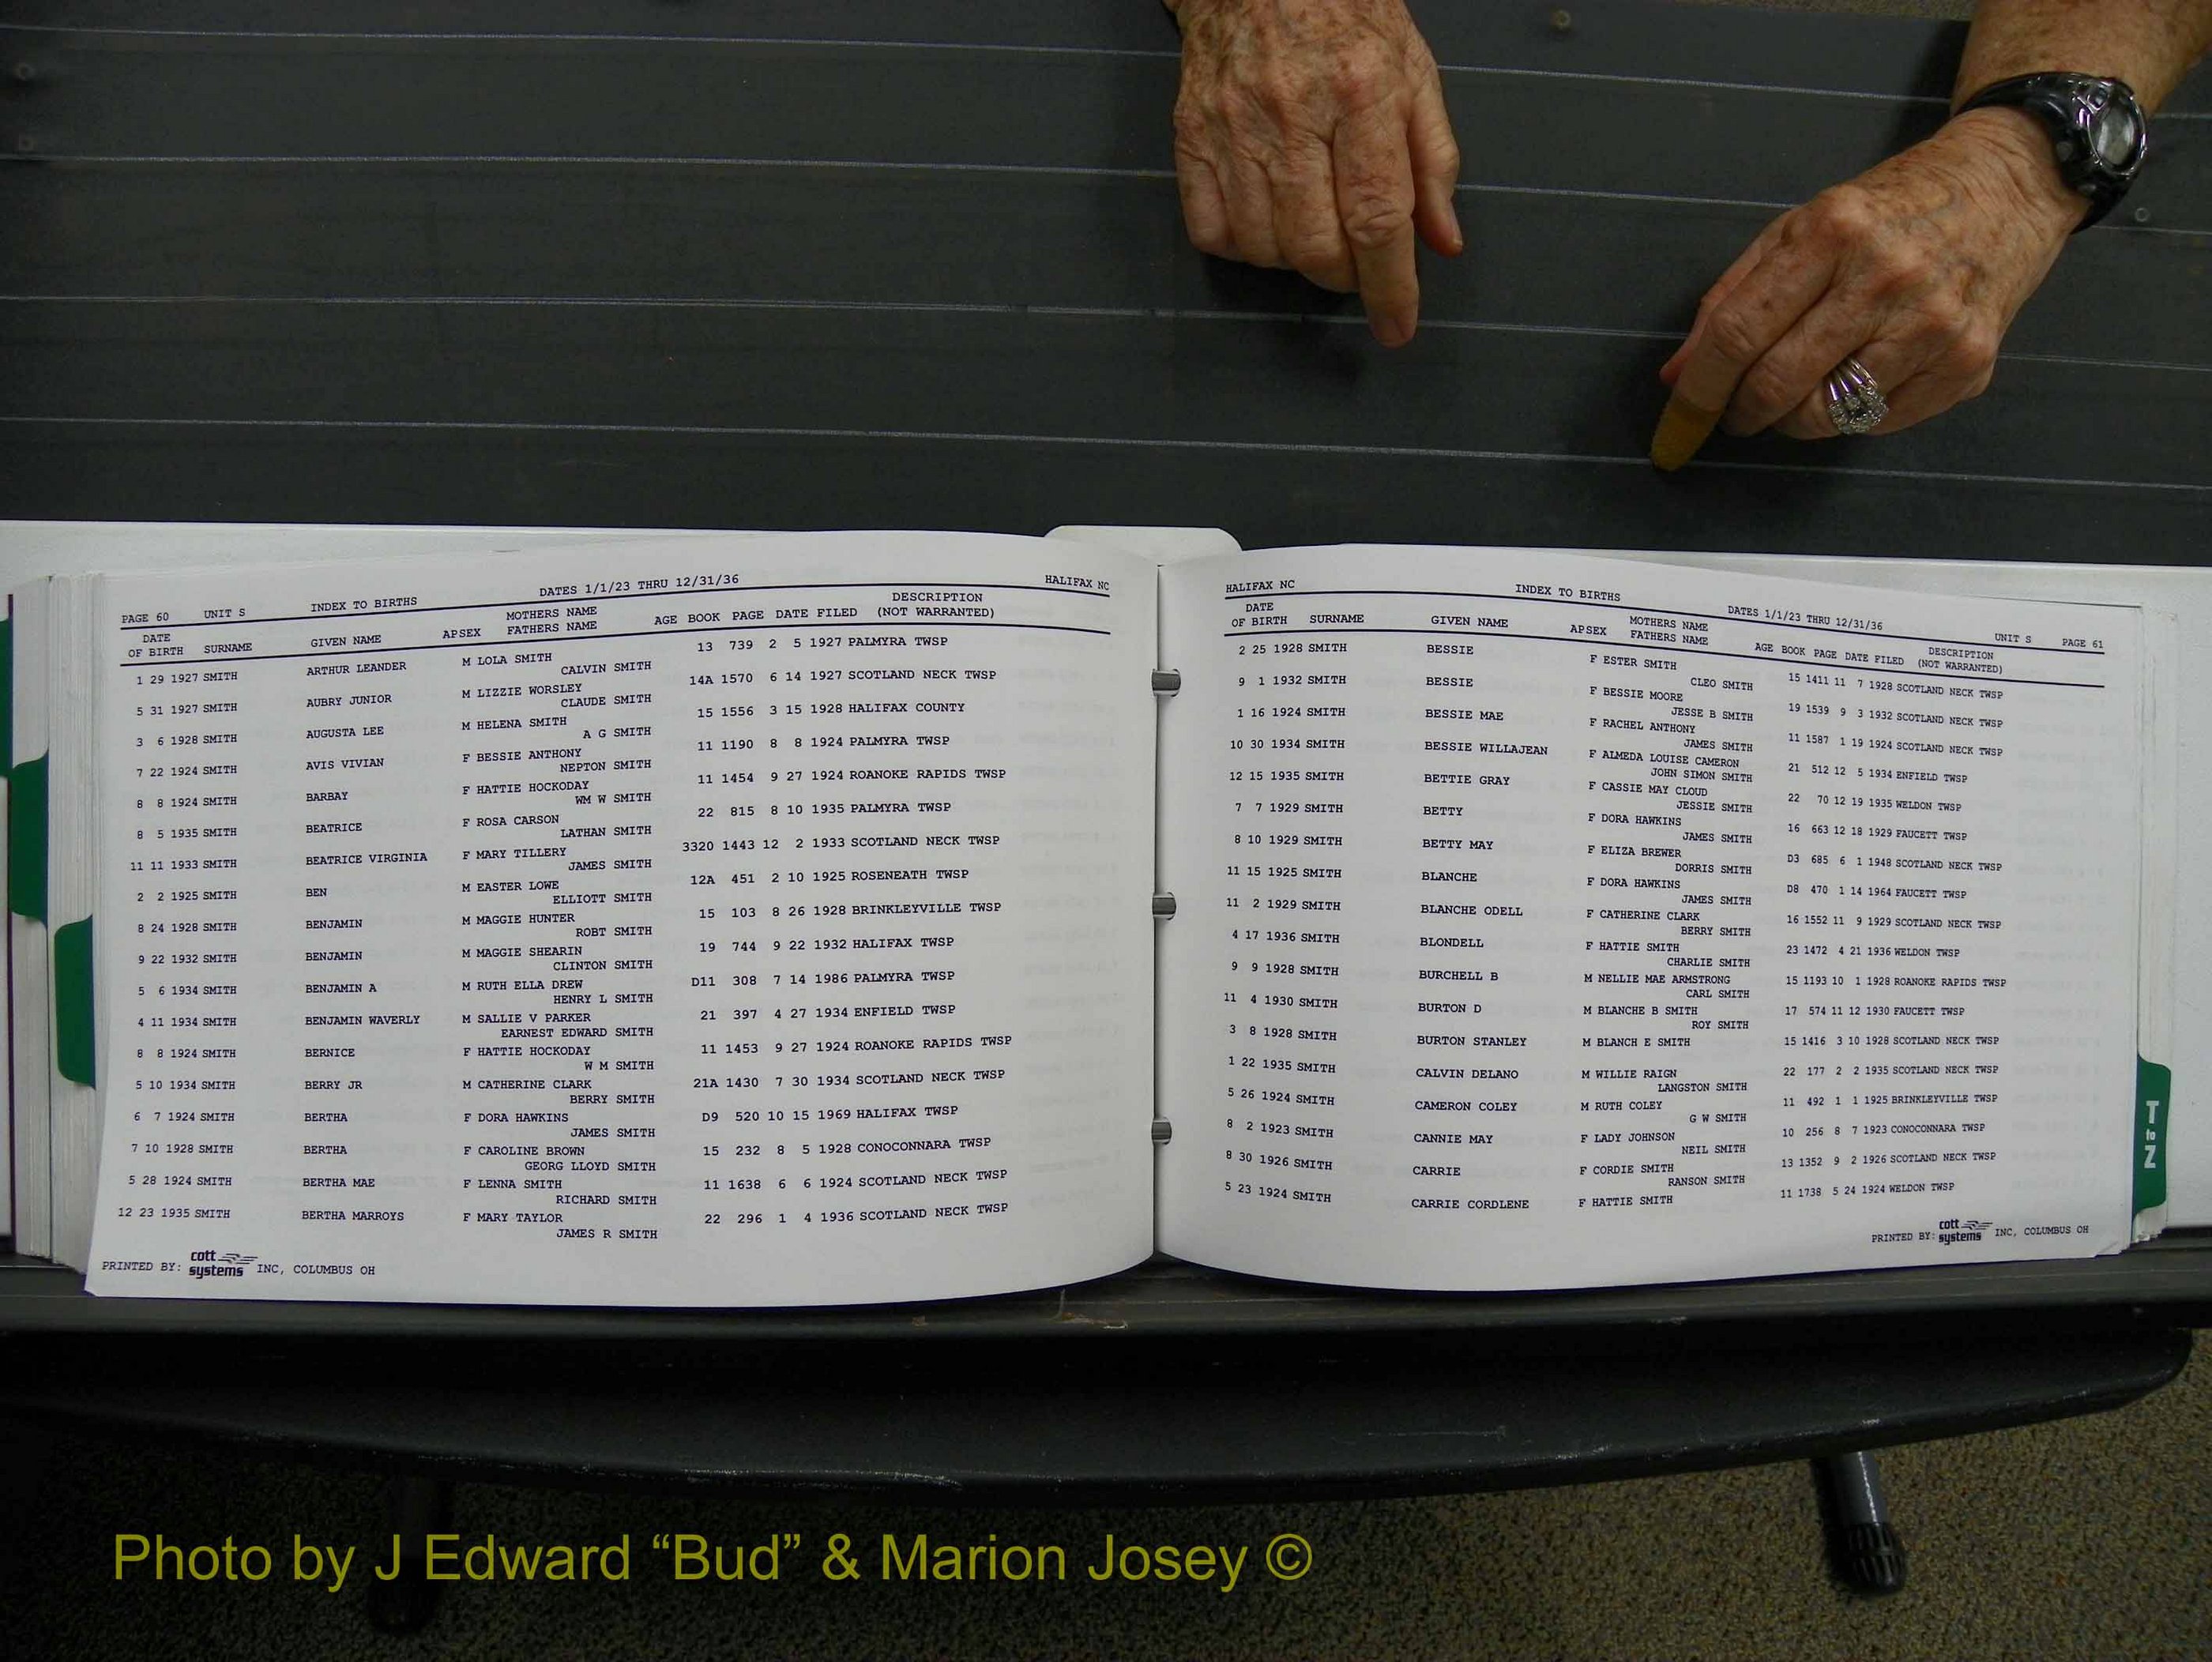 PAGE 60 UNIT S INDEX TO BIRTHS DATES 1/1/23 THRU 12/31/36 HALIFAX NC
DATE OF BIRTH SURNAME GIVEN NAME APSEX MOTHERS NAME FATHERS NAME AGE BOOK PAGE DATE FILED DESCRIPTION (NOT WARRANTED)
1 29 1927 SMITH ARTHUR LEANDER M LOLA SMITH 13 739 2 5 1927 PALMYRA TWSP
CALVIN SMITH
5 31 1927 SMITH AUBRY JUNIOR M LIZZIE WORSLEY 14A 1570 6 14 1927 SCOTLAND NECK TWSP
CLAUDE SMITH
3 6 1928 SMITH AUGUSTA LEE M HELENA SMITH 15 1556 3 15 1928 HALIFAX COUNTY
A G SMITH
7 22 1924 SMITH AVIS VIVIAN F BESSIE ANTHONY 11 1190 8 8 1924 PALMYRA TWSP
NEPTON SMITH
8 8 1924 SMITH BARBAY F HATTIE HOCKODAY 11 1454 9 27 1924 ROANOKE RAPIDS TWSP
WM W SMITH
8 5 1935 SMITH BEATRICE F ROSA CARSON 22 815 8 10 1935 PALMYRA TWSP
LATHAN SMITH
11 11 1933 SMITH BEATRICE VIRGINIA F MARY TILLERY 3320 1443 12 2 1933 SCOTLAND NECK TWSP
JAMES SMITH
2 2 1925 SMITH BEN M EASTER LOWE 12A 451 2 10 1925 ROSENEATH TWSP
ELLIOTT SMITH
8 24 1928 SMITH BENJAMIN M MAGGIE HUNTER 15 103 8 26 1928 BRINKLEYVILLE TWSP
ROBT SMITH
9 22 1932 SMITH BENJAMIN M MAGGIE SHEARIN 19 744 9 22 1932 HALIFAX TWSP
CLINTON SMITH
5 6 1934 SMITH BENJAMIN A M RUTH ELLA DREW D11 308 7 14 1986 PALMYRA TWSP
HENRY L SMITH
4 11 1934 SMITH BENJAMIN WAVERLY M SALLIE V PARKER 21 397 4 27 1934 ENFIELD TWSP
EARNEST EDWARD SMITH
8 8 1924 SMITH BERNICE F HATTIE HOCKODAY 11 1453 9 27 1924 ROANOKE RAPIDS TWSP
W M SMITH
5 10 1934 SMITH BERRY JR M CATHERINE CLARK 21A 1430 7 30 1934 SCOTLAND NECK TWSP
BERRY SMITH
6 7 1924 SMITH BERTHA F DORA HAWKINS D9 520 10 15 1969 HALIFAX TWSP
JAMES SMITH
7 10 1928 SMITH BERTHA F CAROLINE BROWN 15 232 8 5 1928 CONOCONNARA TWSP
GEORG LLOYD SMITH
5 28 1924 SMITH BERTHA MAE F LENNA SMITH 11 1638 6 6 1924 SCOTLAND NECK TWSP
RICHARD SMITH
12 23 1935 SMITH BERTHA MARROYS F MARY TAYLOR 22 296 1 4 1936 SCOTLAND NECK TWSP
JAMES R SMITH
PRINTED BY: cott systems INC, COLUMBUS OH
HALIFAX NC INDEX TO BIRTHS DATES 1/1/23 THRU 12/31/36 UNIT S PAGE 61
DATE OF BIRTH SURNAME GIVEN NAME APSEX MOTHERS NAME FATHERS NAME AGE BOOK PAGE DATE FILED DESCRIPTION (NOT WARRANTED)
2 25 1928 SMITH BESSIE F ESTER SMITH 15 1411 11 7 1928 SCOTLAND NECK TWSP
CLEO SMITH
9 1 1932 SMITH BESSIE F BESSIE MOORE 19 1539 9 3 1932 SCOTLAND NECK TWSP
JESSE B SMITH
1 16 1924 SMITH BESSIE MAE F RACHEL ANTHONY 11 1587 1 19 1924 SCOTLAND NECK TWSP
JAMES SMITH
10 30 1934 SMITH BESSIE WILLAJEAN F ALMEDA LOUISE CAMERON 21 512 12 5 1934 ENFIELD TWSP
JOHN SIMON SMITH
12 15 1935 SMITH BETTIE GRAY F CASSIE MAY CLOUD 22 70 12 19 1935 WELDON TWSP
JESSIE SMITH
7 7 1929 SMITH BETTY F DORA HAWKINS 16 663 12 18 1929 FAUCETT TWSP
JAMES SMITH
8 10 1929 SMITH BETTY MAY F ELIZA BREWER D3 685 6 1 1948 SCOTLAND NECK TWSP
DORRIS SMITH
11 15 1925 SMITH BLANCHE F DORA HAWKINS D8 470 1 14 1964 FAUCETT TWSP
JAMES SMITH
11 2 1929 SMITH BLANCHE ODELL F CATHERINE CLARK 16 1552 11 9 1929 SCOTLAND NECK TWSP
BERRY SMITH
4 17 1936 SMITH BLONDELL F HATTIE SMITH 23 1472 4 21 1936 WELDON TWSP
CHARLIE SMITH
9 9 1928 SMITH BURCHELL B M NELLIE MAE ARMSTRONG 15 1193 10 1 1928 ROANOKE RAPIDS TWSP
CARL SMITH
11 4 1930 SMITH BURTON D M BLANCHE B SMITH 17 574 11 12 1930 FAUCETT TWSP
ROY SMITH
3 8 1928 SMITH BURTON STANLEY M BLANCH E SMITH 15 1416 3 10 1928 SCOTLAND NECK TWSP
1 22 1935 SMITH CALVIN DELANO M WILLIE RAIGN 22 177 2 2 1935 SCOTLAND NECK TWSP
LANGSTON SMITH
5 26 1924 SMITH CAMERON COLEY M RUTH COLEY 11 492 1 1 1925 BRINKLEYVILLE TWSP
G W SMITH
8 2 1923 SMITH CANNIE MAY F LADY JOHNSON 10 256 8 7 1923 CONOCONNARA TWSP
NEIL SMITH
8 30 1926 SMITH CARRIE F CORDIE SMITH 13 1352 9 2 1926 SCOTLAND NECK TWSP
RANSON SMITH
5 23 1924 SMITH CARRIE CORDLENE F HATTIE SMITH 11 1738 5 24 1924 WELDON TWSP
PRINTED BY: cott systems INC, COLUMBUS OH
T to Z
Photo by J Edward “Bud” & Marion Josey ©